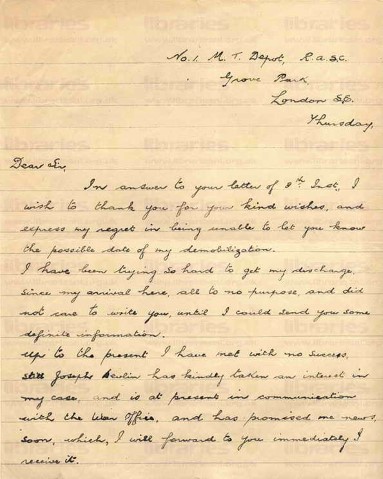 No. 1. M. T. Depot, R.A.S.C.
Grove Park,
London S.E.
Thursday.
Dear Sir,
In answer to your letter of 8th Inst., I
wish to thank you for your kind wishes, and
express my regret in being unable to let you know
the possible date of my demobilization.
I have been trying so hard to get my discharge,
since my arrival here, all to no purpose, and did
not care to write you, until I could send you some
definite information.
Up to the present I have met with no success,
still Joseph Devlin has kindly taken an interest in
my case, and is at present in communication
with the War Office, and has promised me news,
soon, which, I will forward to you immediately I
receive it.
libraries